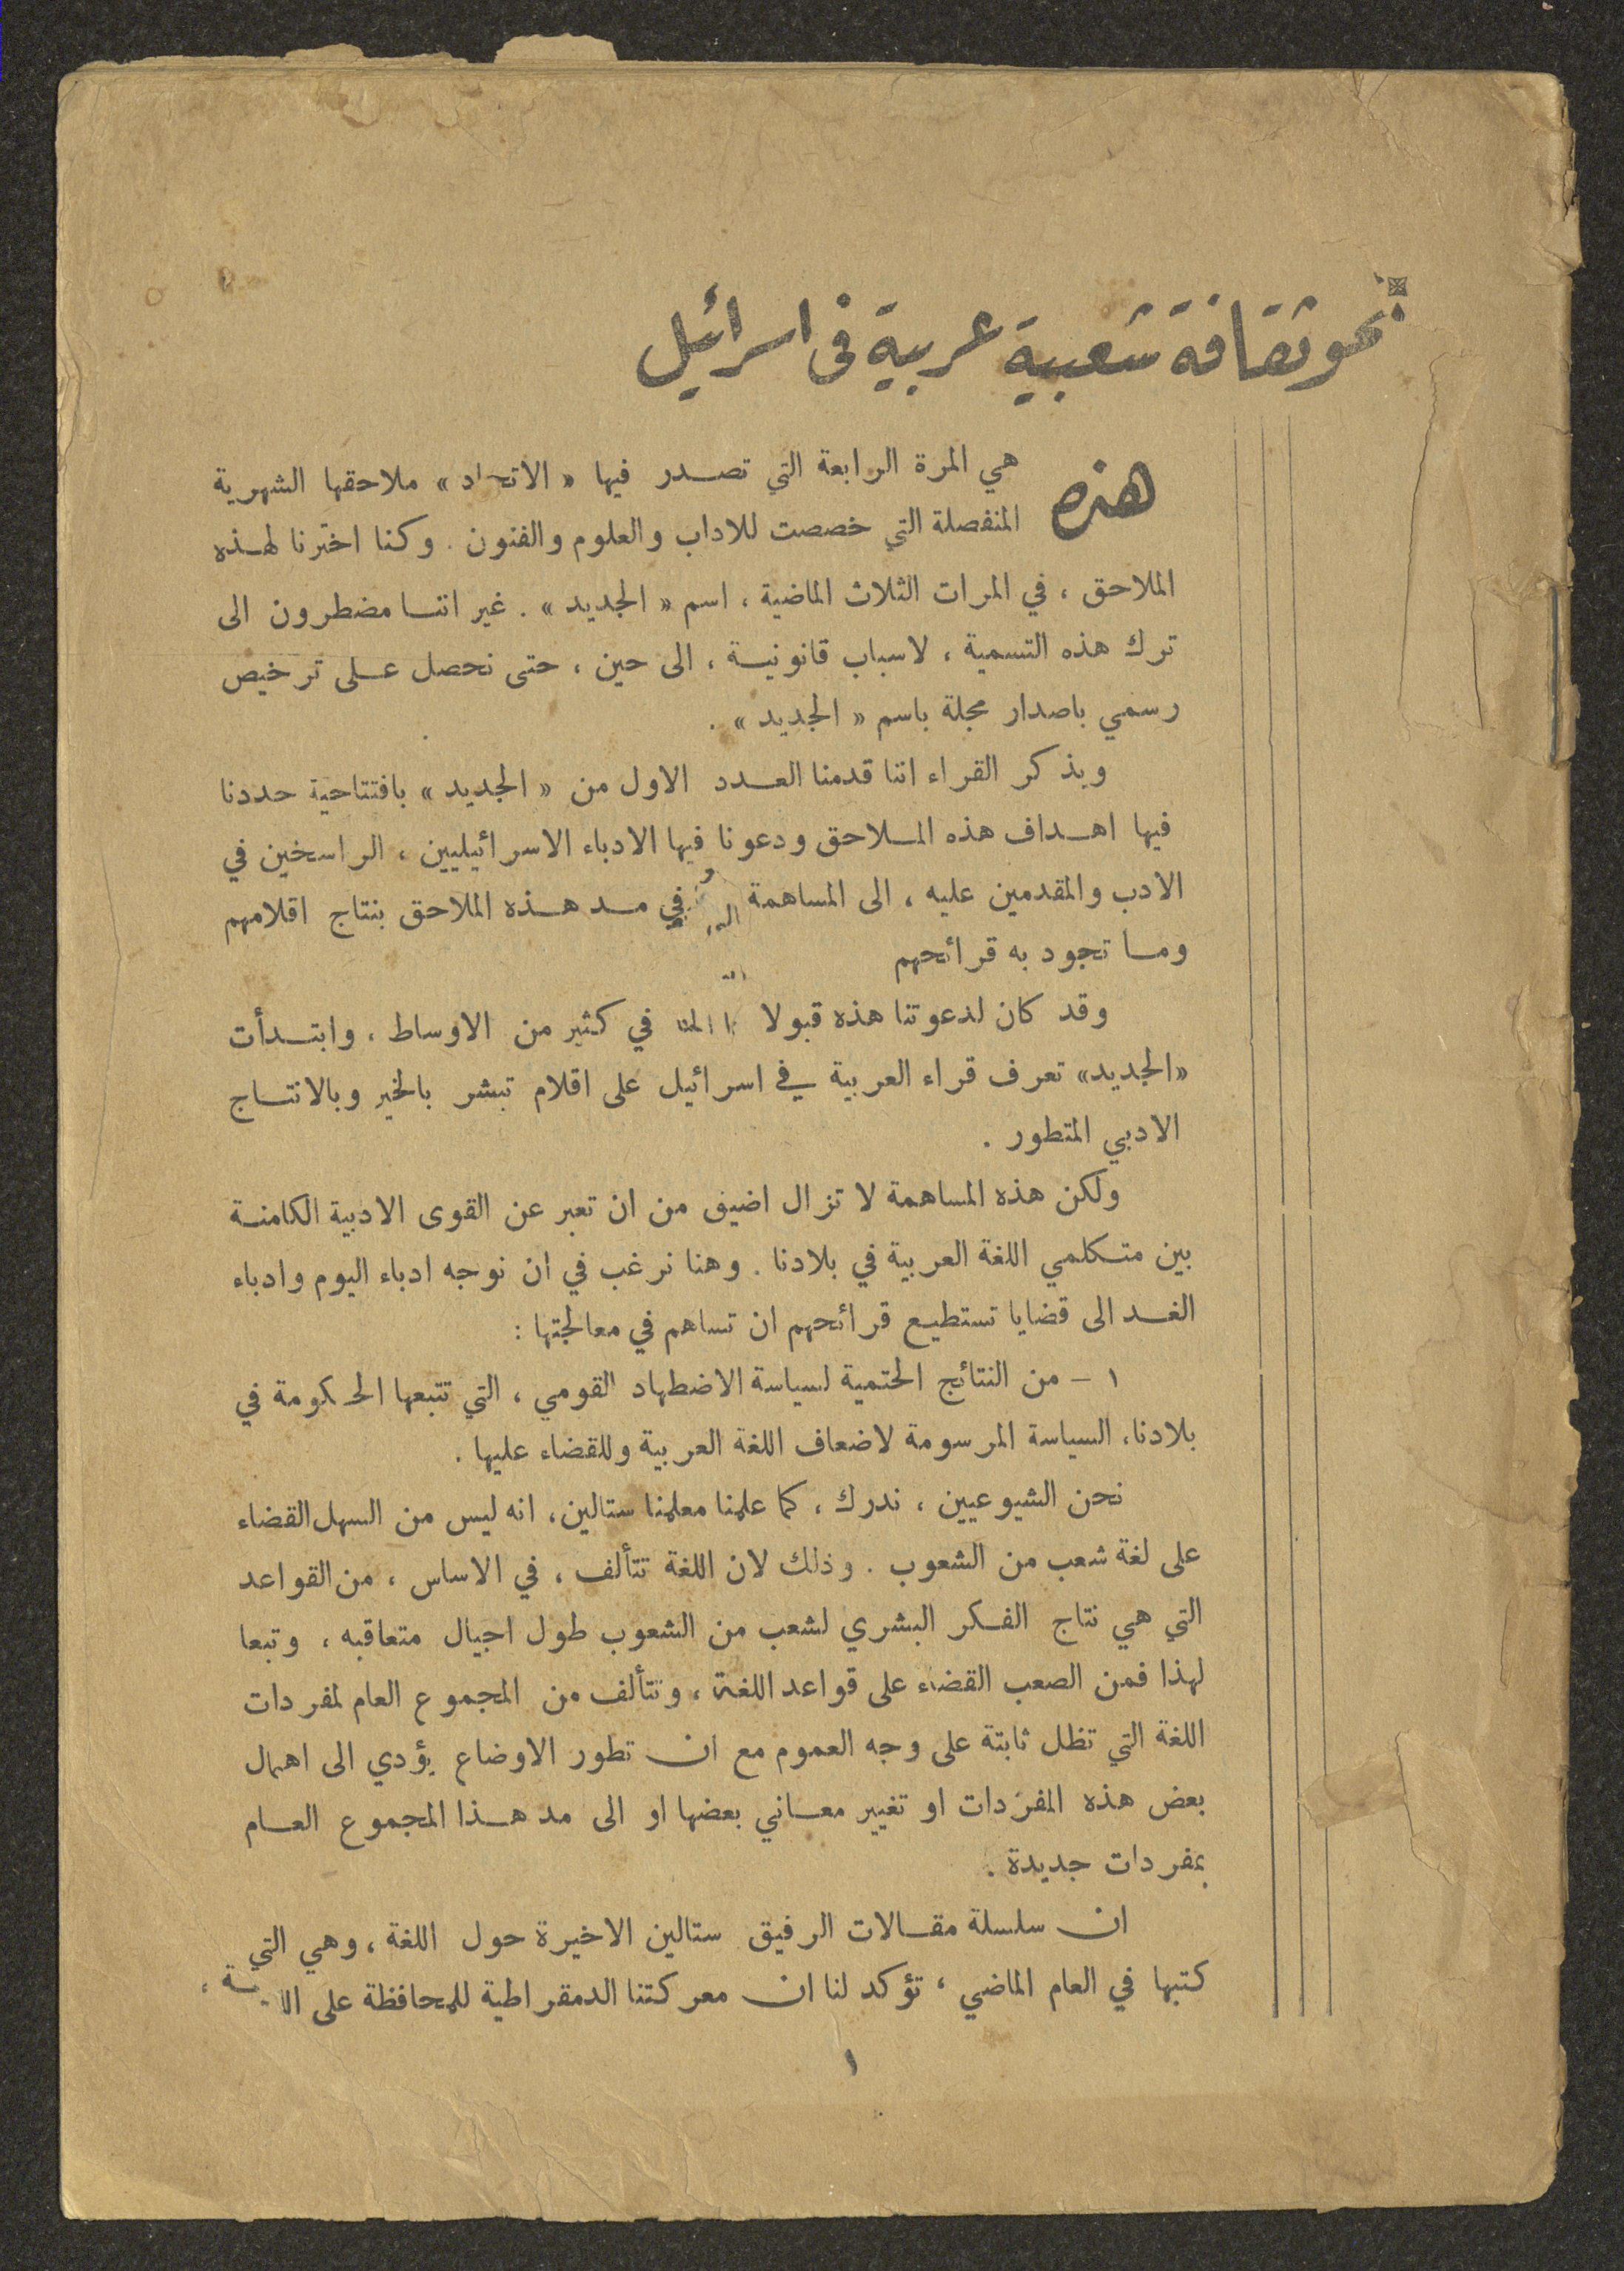 نحو ثقافة شعبية عربية في اسرائيل
هذه هي المرة الرابعة التي تصدر فيها « الاتحاد » ملاحقها الشهرية
المنفصلة التي خصصت للاداب والعلوم والفنون . وكنا اخترنا لهذه
الملاحق ، في المرات الثلاث الماضية ، اسم « الجديد » . غير اننا مضطرون الى
ترك هذه التسمية ، لاسباب قانونية ، الى حين ، حتى نحصل على ترخيص
رسمي باصدار مجلة باسم « الجديد » .
ويذكر القراء اننا قدمنا العدد الاول من « الجديد » بافتتاحية حددنا
فيها اهداف هذه الملاحق ودعونا فيها الادباء الاسرائيليين ، الراسخين في
الادب والمقدمين عليه ، الى المساهمة في مد هذه الملاحق بنتاج اقلامهم
وما تجود به قرائحهم
وقد كان لدعوتنا هذه قبولا في كثير من الاوساط ، وابتدأت
«الجديد» تعرف قراء العربية في اسرائيل على اقلام تبشر بالخير وبالانتاج
الادبي المتطور .
ولكن هذه المساهمة لا تزال اضيق من ان تعبر عن القوى الادبية الكامنة
بين متكلمي اللغة العربية في بلادنا . وهنا نرغب في ان نوجه ادباء اليوم وادباء
الغد الى قضايا تستطيع قرائحهم ان تساهم في معالجتها :
١ - من النتائج الحتمية لسياسة الاضطهاد القومي ، التي تتبعها الحكومة في
بلادنا، السياسة المرسومة لاضعاف اللغة العربية وللقضاء عليها .
نحن الشيوعيين ، ندرك ، كما علمنا معلمنا ستالين، انه ليس من السهل القضاء
على لغة شعب من الشعوب . وذلك لان اللغة تتألف ، في الاساس ، من القواعد
التي هي نتاج الفكر البشري لشعب من الشعوب طول اجيال متعاقبه ، وتبعا
لهذا فمن الصعب القضاء على قواعد اللغة ، وتتألف من المجموع العام لمفردات
اللغة التي تظل ثابتة على وجه العموم مع ان تطور الاوضاع يؤدي الى اهمال
بعض هذه المفردات او تغيير معاني بعضها او الى مد هذا المجموع العام
بمفردات جديدة .
ان سلسلة مقالات الرفيق ستالين الاخيرة حول اللغة ، وهي التي
كتبها في العام الماضي ، تؤكد لنا ان معركتنا الدمقراطية للمحافظة على
١